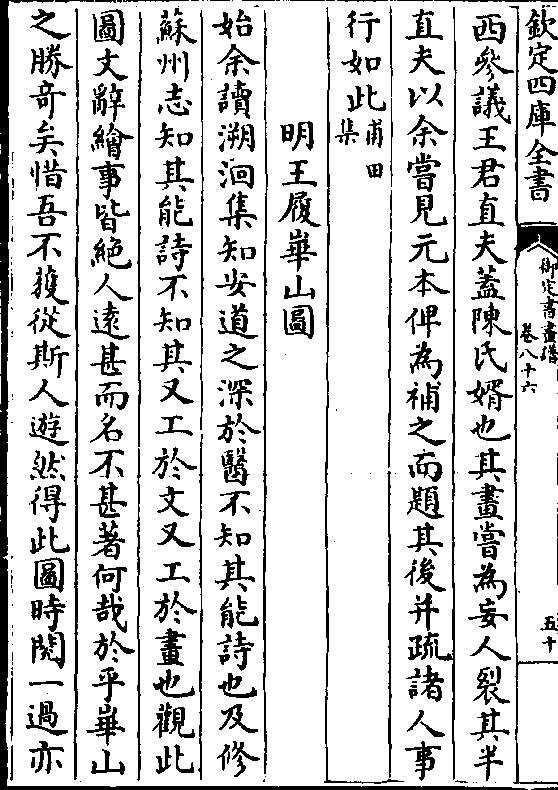 欽定四庫全書
御定書畫譜
卷八十六
五十
西參議王君直夫蓋陳氏婿也其畫嘗為妄人裂其半
直夫以余嘗見元本俾為補之而題其後并疏諸人事
行如此甫田集
明王履崋山圖
始余讀溯洄集知安道之深於醫不知其能詩也及修
蘇州志知其能詩不知其又工於文又工於畫也觀此
圖文辭繪事皆絕人遠甚而名不甚著何哉於乎崋山
之勝竒矣惜吾不獲從斯人遊然得此圖時閱一過亦